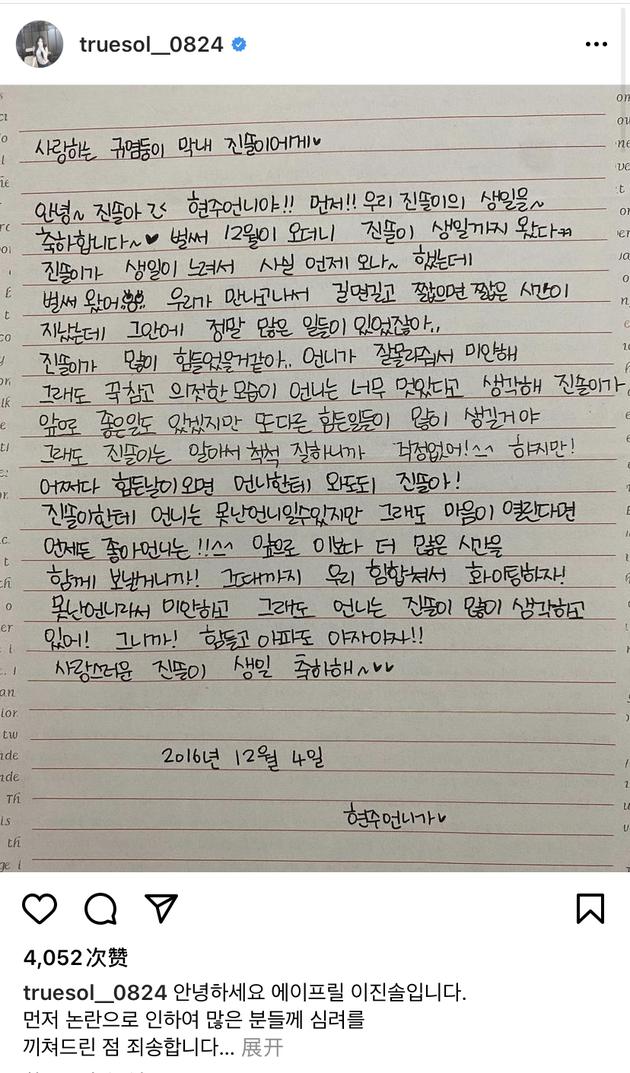 truesol__0824
사랑하는 귀염둥이 막내 진쏠이에게♥
안녕~ 진쏠아 현주언니야!! 먼저!! 우리 진쏠이의 생일을~
축하합니다~♥ 벌써 12월이 오더니 진쏠이 생일까지 왔다ㅠㅠ
진쏠이가 생일이 느려서 사실 언제 오나~ 했는데
벌써 왔어 우리가 만나고나서 길면길고 짧으면 짧은 시간이
지났는데 그안에 정말 많은 일들이 있었잖아..
진쏠이가 많이 힘들었을거같아.. 언니가 잘몰라줘서 미안해
그래도 꾹참고 의젓한 모습이 언니는 너무 멋있다고 생각해 진쏠이가
앞으로 좋은일도 있겠지만 또다른 힘든일들이 많이 생길거야
그래도 진쏠이는 알아서 척척 잘하니까 걱정없어!^^ 하지만!
어쩌다 힘든날이오면 언니한테 와도돼 진쏠아!
진쏠이한테 언니는 못난언니일수있지만 그래도 마음이 열린다면
언제든 좋아언니는!!^^ 앞으로 이보다 더 많은 시간을
함께 보낼거니까! 그때까지 우리 힘합쳐서 화이팅하자!
못난언니라서 미안하고 그래도 언니는 진쏠이 많이 생각하고
있어! 그니까! 힘들고 아파도 아자아자!!
사랑스러운 진쏠이 생일 축하해~♥♥
2016년 12월 4일
현주언니가♥
4,052次赞
truesol__0824 안녕하세요 에이프릴 이진솔입니다.
먼저 논란으로 인하여 많은 분들께 심려를
끼쳐드린 점 죄송합니다... 展开